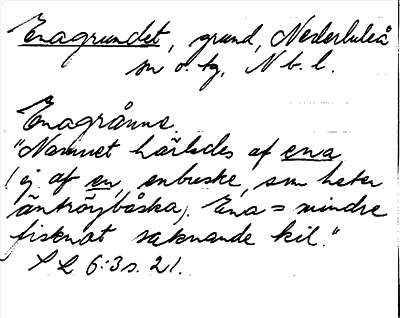 Enagrundet, grund, Nederluleå
sn o. tg, N b. l.
Enagrånne.
"Namnet härledes af ena
(ej af en, enbuske, som heter
äntröybåska). Ena = mindre
fisknot saknande kil."
S L 6:3 s. 21.